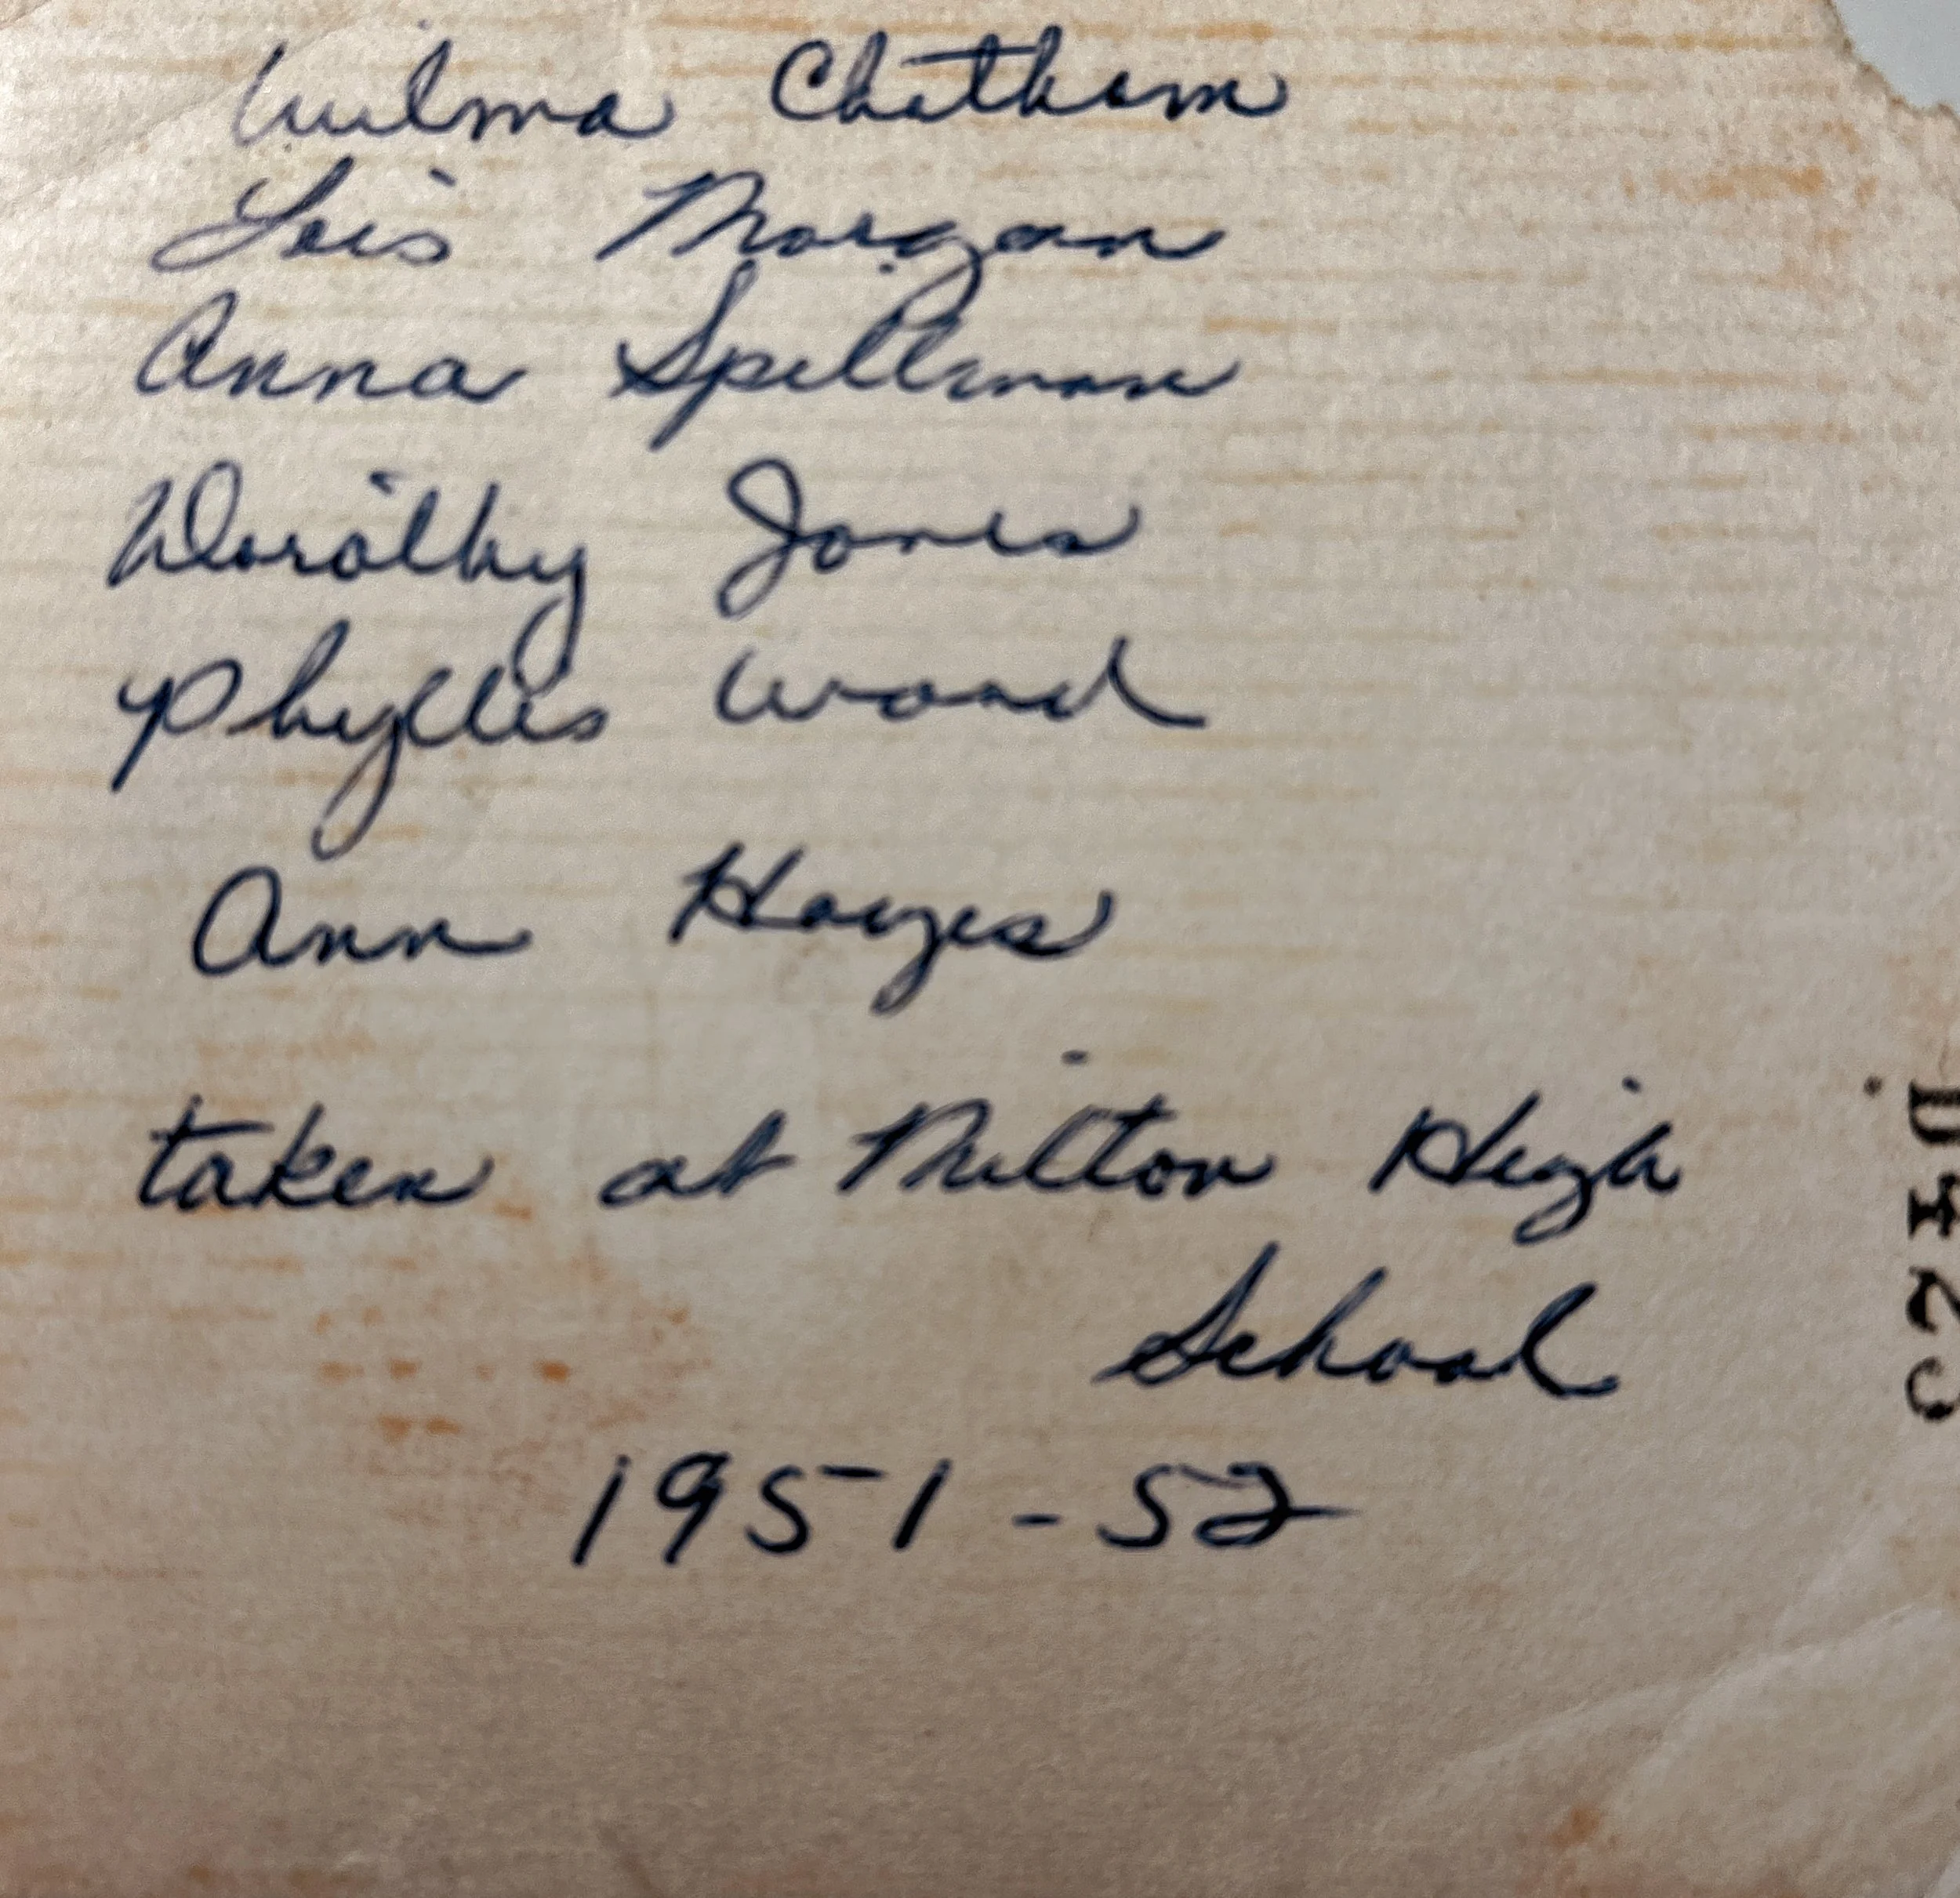 Wilma Chatham
Lois Morgan
Anna Spillman
Dorothy Jones
Phyllis Wood
Ann Hayes
taken at Milton High
School
1951-52